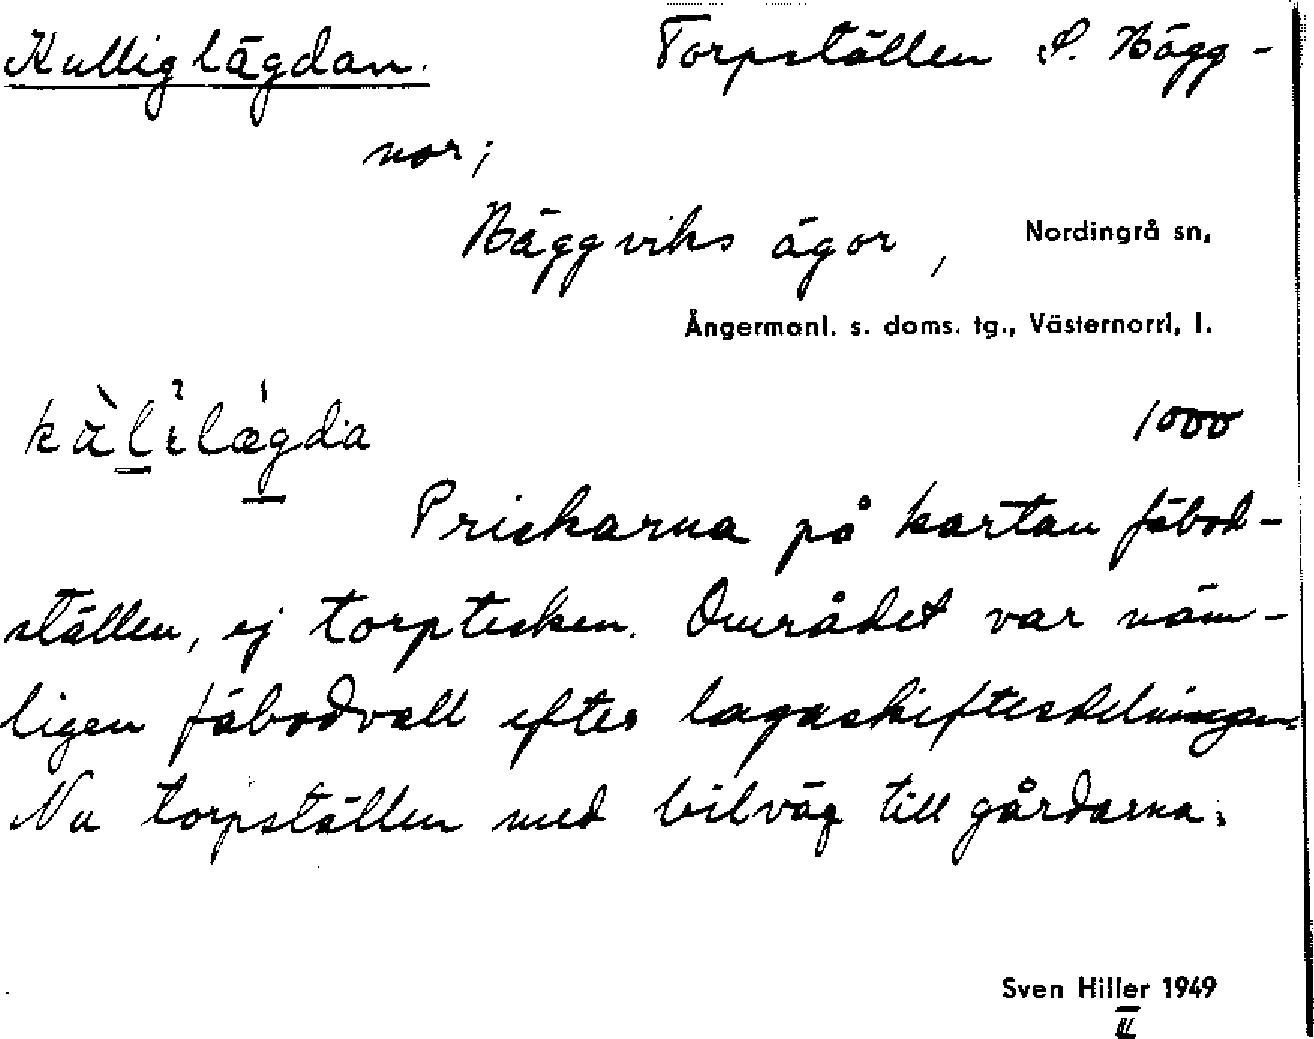 Kulliglägdan. Torpställen S. Hägg-
nor;
Häggviks ägor, Nordingrå sn,
Ångermanl. s. doms. tg., Västernorrl. l.
1000
Prickarna på kartan fäbod-
ställen, ej torptecken. Området var näm-
ligen fäbodvall efter lagaskiftesdelningen.
Nu torpställen med bilväg till gårdarna.
Sven Hiller 1949
II